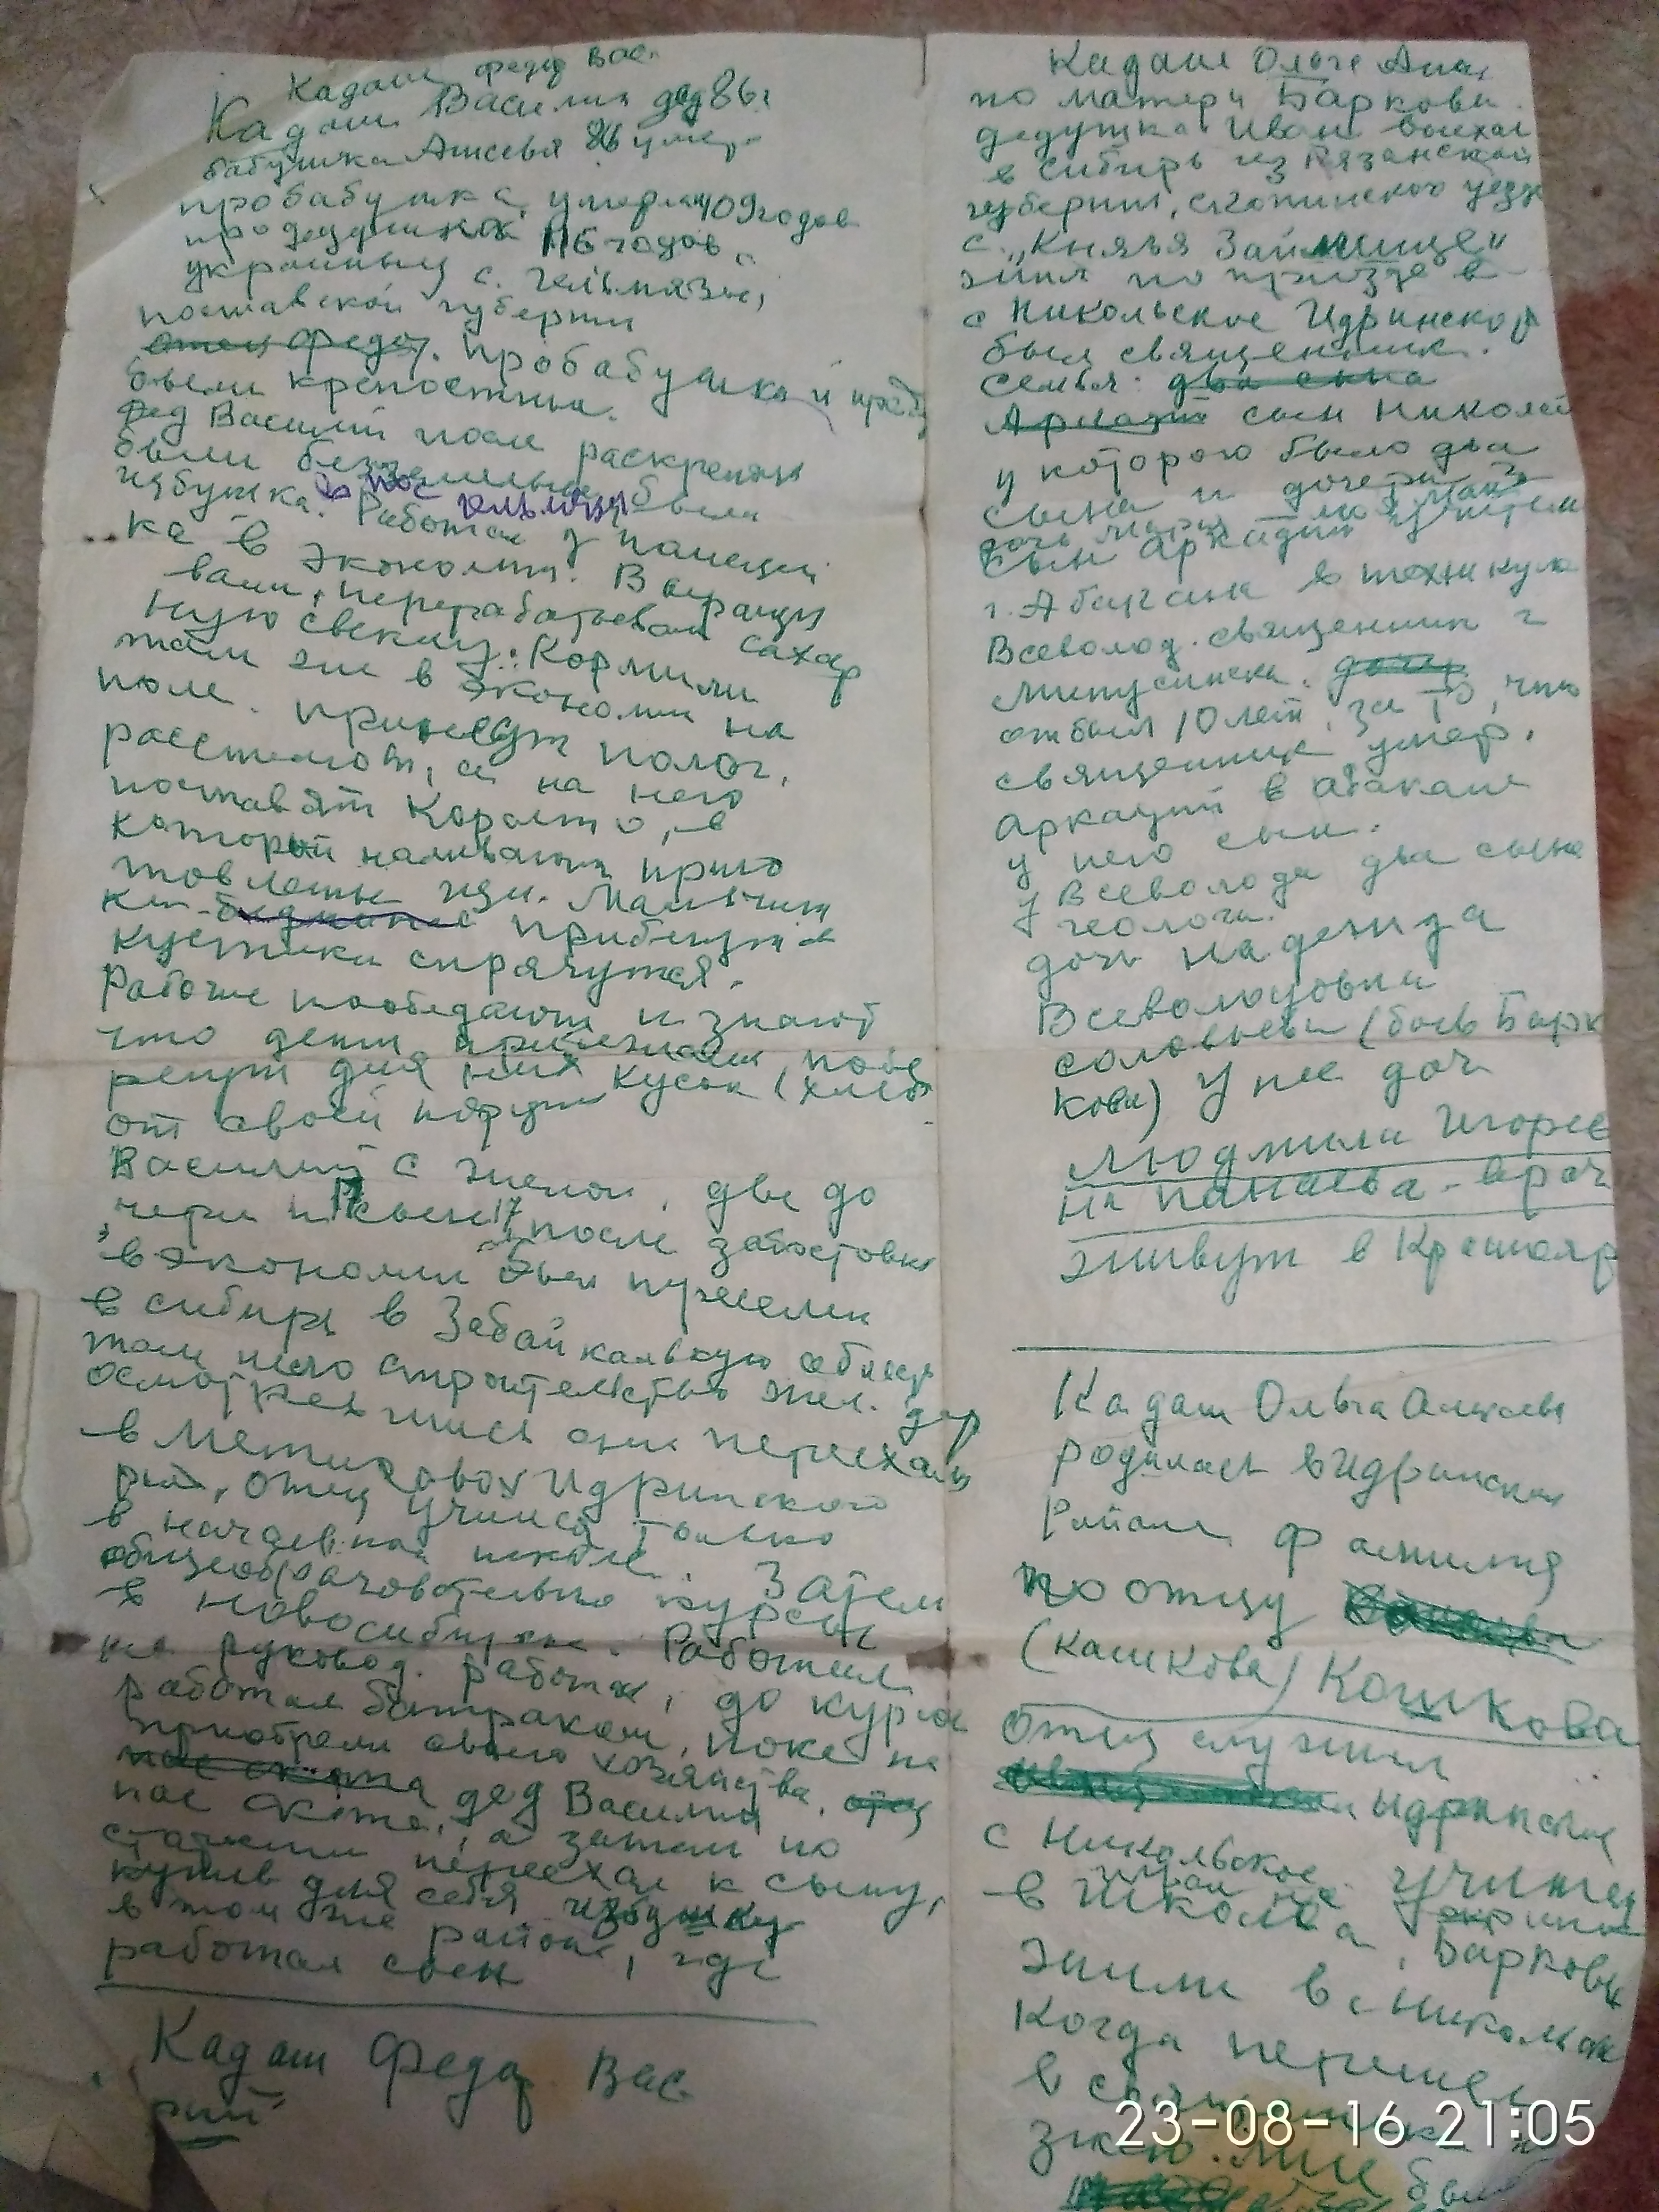 Кадаш Федр Вас.
Кадаш Василия дед 86 г
бабушка 86 умер.
пробабушка, умерла 109 годов
продедушка 116 годов
украины с. Гельмязы,
полтавской губерни
отец Федр. пробабушка и прад
были крепостны.
дед Василий после раскрепощ
были безземельны была
избушка. в пос Гельмязы
Работал у помещи
ка в экономии. Выращи
вали, перерабатывали сахар
ную свеклу. Кормили
там же в экономии на
поле. принесут полог,
расстелют, а на него
поставят Корыто, в
который наливают приго
товлены щи. Мальчиш
ки прибегут в
кустики спрячутся.
Рабочие пообедают и знают
что дети прибежали, побе
регут для них кусок (хлеба
от своей порции
Василий с женой, две до
чери и сын 17, после забастовки
в экономии был переселен
в сибирь в Забайкальскую область
там шло строительство жел. дор
осмотревшись они переехали
в Идринского
рна, отец учился только
в начальной школе. Затем
общеобразовательные курсы
в Новосибирске. Работал
на руковод. работах, до курсов
работал батраком, пока не
приобрели своего хозяйства, отец
пас скота дед Василий
пас скота, а затем по
старости переехал к сыну,
купив для себя избушку
в том же районе, где
работал сын
Кадаш Федор Вас
рий
Кадаш Ольге Алек
по матери Баркова.
дедушка Иван выехал
в Сибирь из Рязанской
губернии, скопинского уезда
с. "Князья Займище"
жил по приезде в
с Никольское Идринского
был священник.
Семья: два сына
Аркадий сын Николай
у которого было два
сына и дочери
дочь Мария
сын Аркадий учителем
г. Абакана в техникуме
Всеволод. священник г
Минусинска. дочь
отбыл 10 лет, за то, что
священник умер.
Аркадий в Абакане
у него сын.
у Всеволода два сына
геологи.
дочь Надежда
Всеволодовна
Соловьева (быв Барк
кова) у нее доч
Людмила Игорев
на Панаева - врач
живут в Краснояр
Кадаш Ольга Алексеев
родилась в Идринском
Районе фамилия
по отцу
(кашкова) Кошкова
Отец служил
Идринское
с Никольское. Учитель
в школе, Барковы
жили в с Никольск
Когда перешел
в
знаю. Мне было
23-08-16 21:05